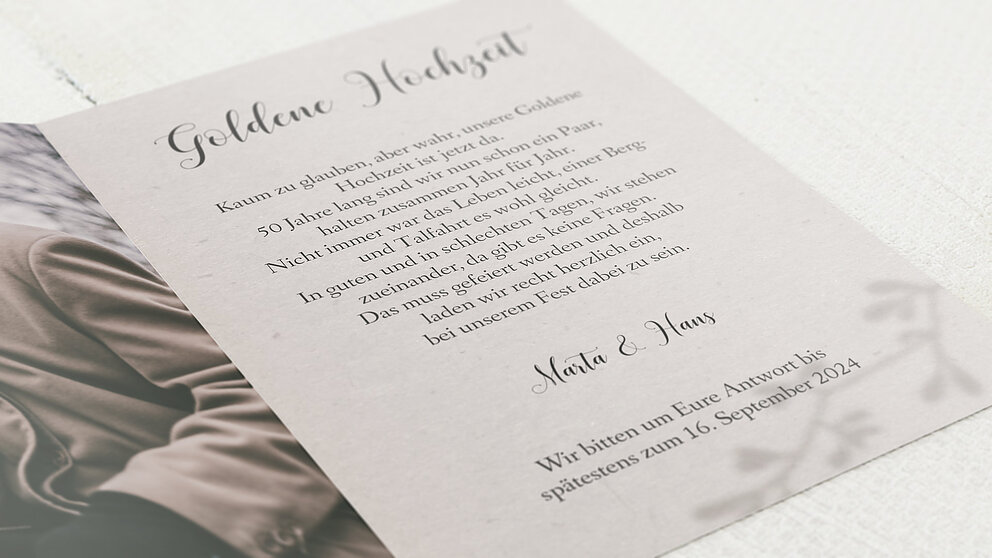 Goldene Hochzeit
Kaum zu glauben, aber wahr, unsere Goldene
Hochzeit ist jetzt da.
50 Jahre lang sind wir nun schon ein Paar,
halten zusammen Jahr für Jahr.
Nicht immer war das Leben leicht, einer Berg-
und Talfahrt es wohl gleicht.
In guten und in schlechten Tagen, wir stehen
zueinander, da gibt es keine Fragen.
Das muss gefeiert werden und deshalb
laden wir recht herzlich ein,
bei unserem Fest dabei zu sein.
Marta & Hans
Wir bitten um Eure Antwort bis
spätestens zum 16. September 2024